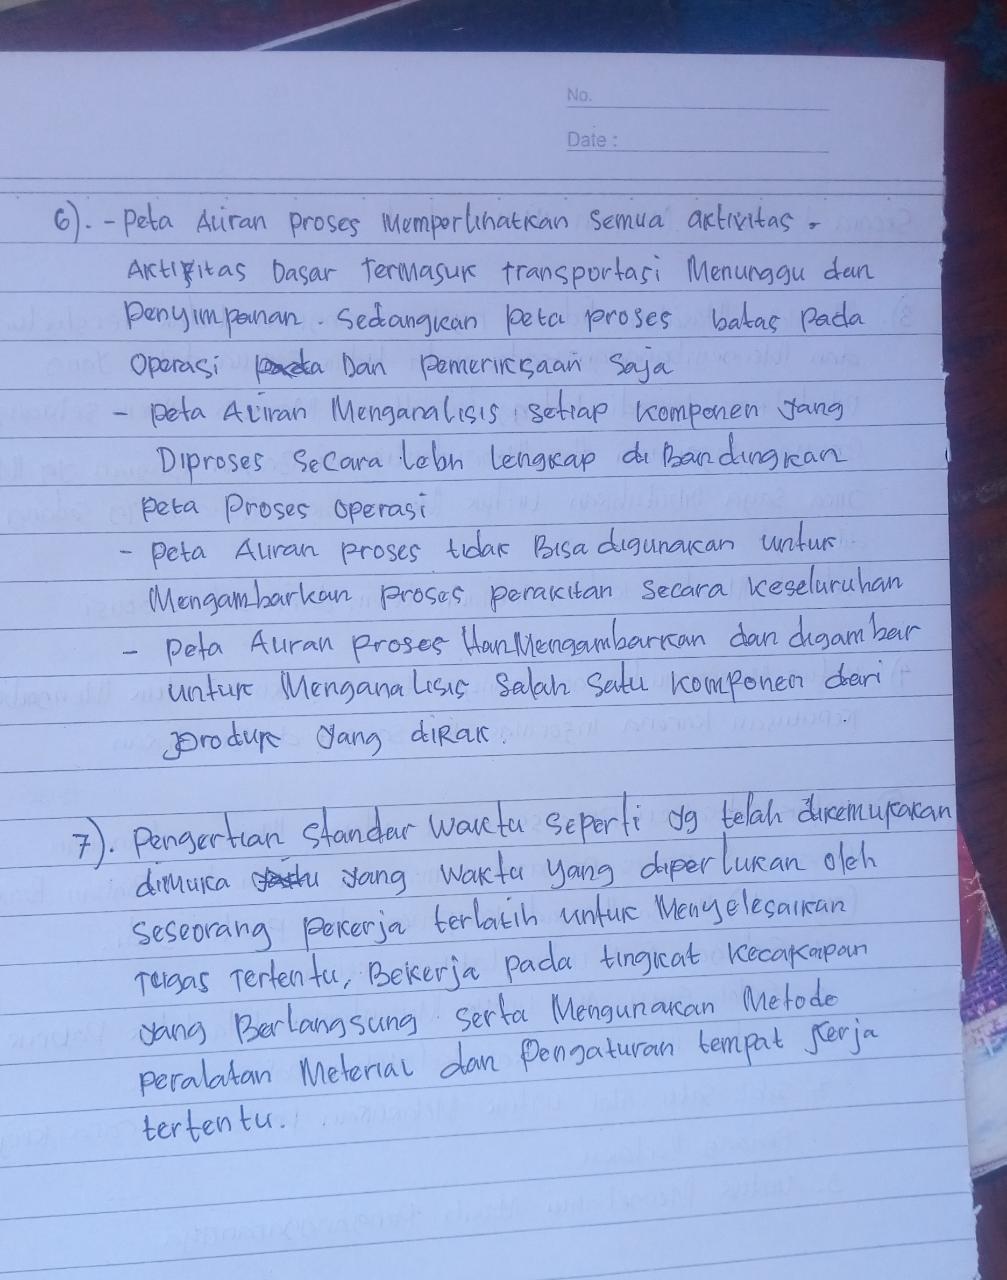 No.
Date :
6). - Peta Aliran Proses Memperlihatkan Semua aktivitas -
Aktifitas Dasar Termasuk transportasi Menunggu dan
Penyimpanan. Sedangkan peta proses batas pada
Operasi Dan Pemeriksaan Saja
- peta Aliran Menganalisis setiap komponen yang
Diproses Secara Lebh lengkap di Bandingkan
peta Proses Operasi
- peta Aliran proses tidak Bisa digunakan untuk
Mengambarkan proses perakitan secara keseluruhan
- peta Aliran proses Han Mengambarkan dan digambar
untuk Menganalisis Salah Satu komponen dari
produk yang diRak.
7). Pengertian Standar Waktu seperti yg telah dikemukakan
dimuka yang waktu yang diperlukan oleh
seseorang pekerja terlatih untuk Menyelesaikan
Tugas Tertentu, Bekerja pada tingkat kecakapan
yang Berlangsung serta Mengunakan Metode
peralatan Meterial dan Pengaturan tempat kerja
tertentu.